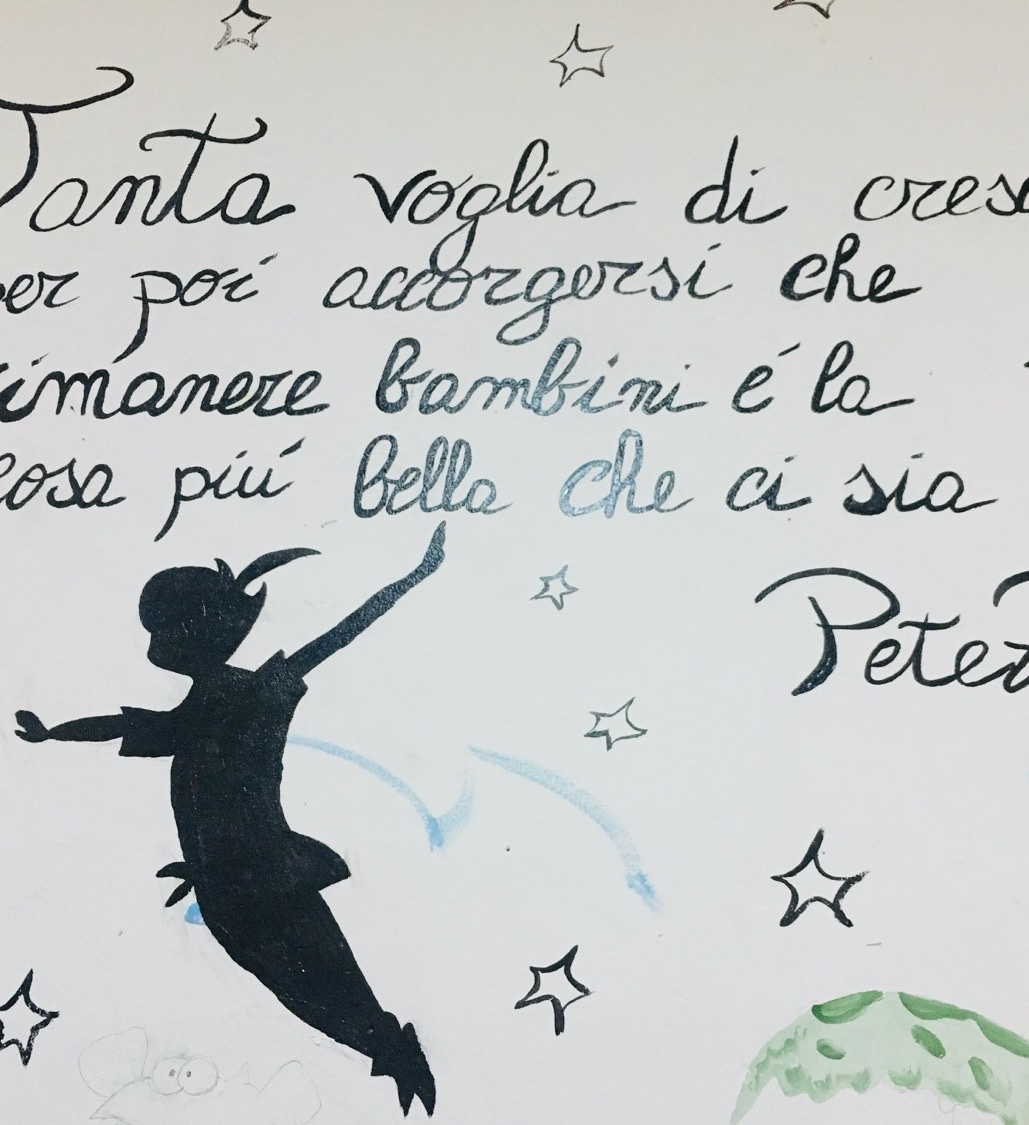 Tanta voglia di cresc
per poi accorgersi che
rimanere bambini é la
cosa piú bella che ci sia
Peter